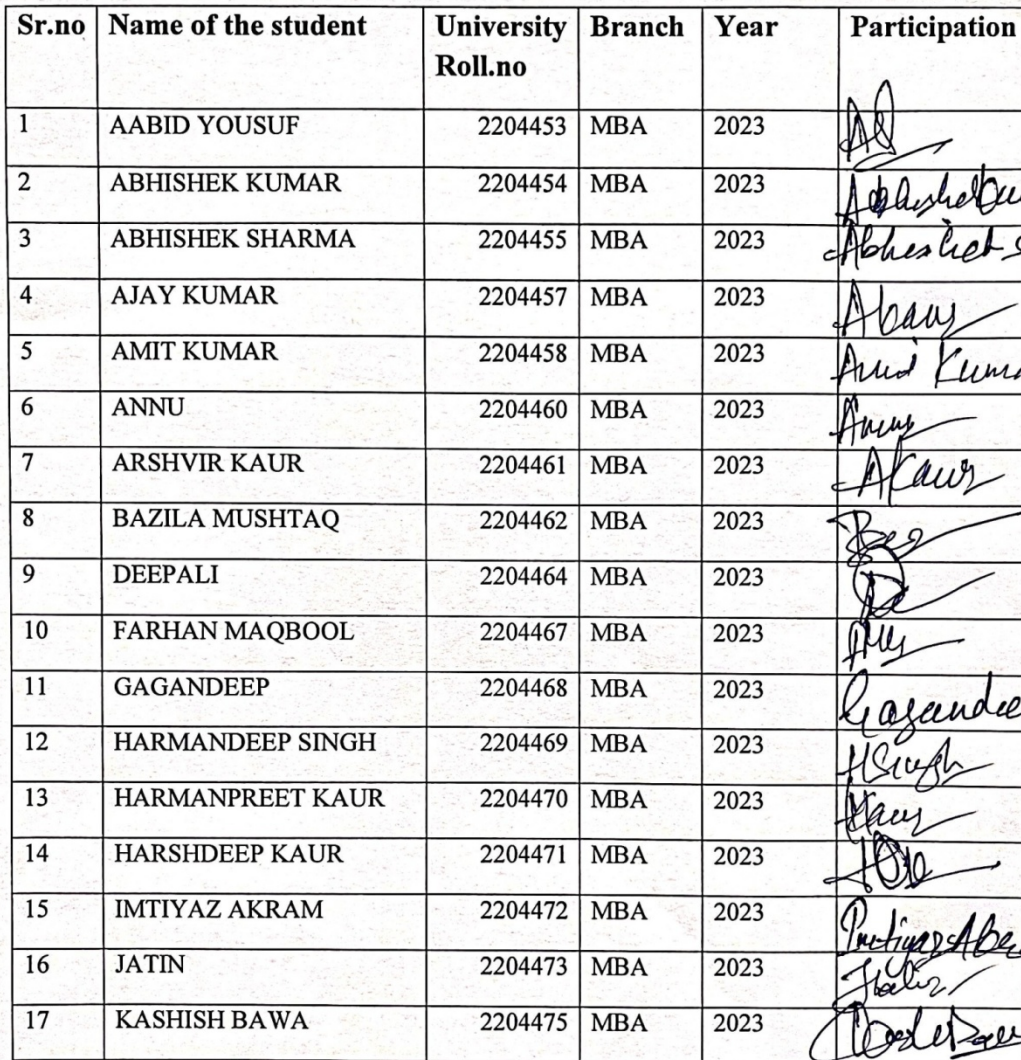 Sr.no Name of the student University Branch Year Participation
Roll.no
1 AABID YOUSUF 2204453 MBA 2023
2 ABHISHEK KUMAR 2204454 MBA 2023
3 ABHISHEK SHARMA 2204455 MBA 2023
4 AJAY KUMAR 2204457 MBA 2023
5 AMIT KUMAR 2204458 MBA 2023
6 ANNU 2204460 MBA 2023
7 ARSHVIR KAUR 2204461 MBA 2023 AKaur
8 BAZILA MUSHTAQ 2204462 MBA 2023
9 DEEPALI 2204464 MBA 2023
10 FARHAN MAQBOOL 2204467 MBA 2023
11 GAGANDEEP 2204468 MBA 2023 Gagandee
12 HARMANDEEP SINGH 2204469 MBA 2023 HSingh
13 HARMANPREET KAUR 2204470 MBA 2023
14 HARSHDEEP KAUR 2204471 MBA 2023
15 IMTIYAZ AKRAM 2204472 MBA 2023
16 JATIN 2204473 MBA 2023
17 KASHISH BAWA 2204475 MBA 2023